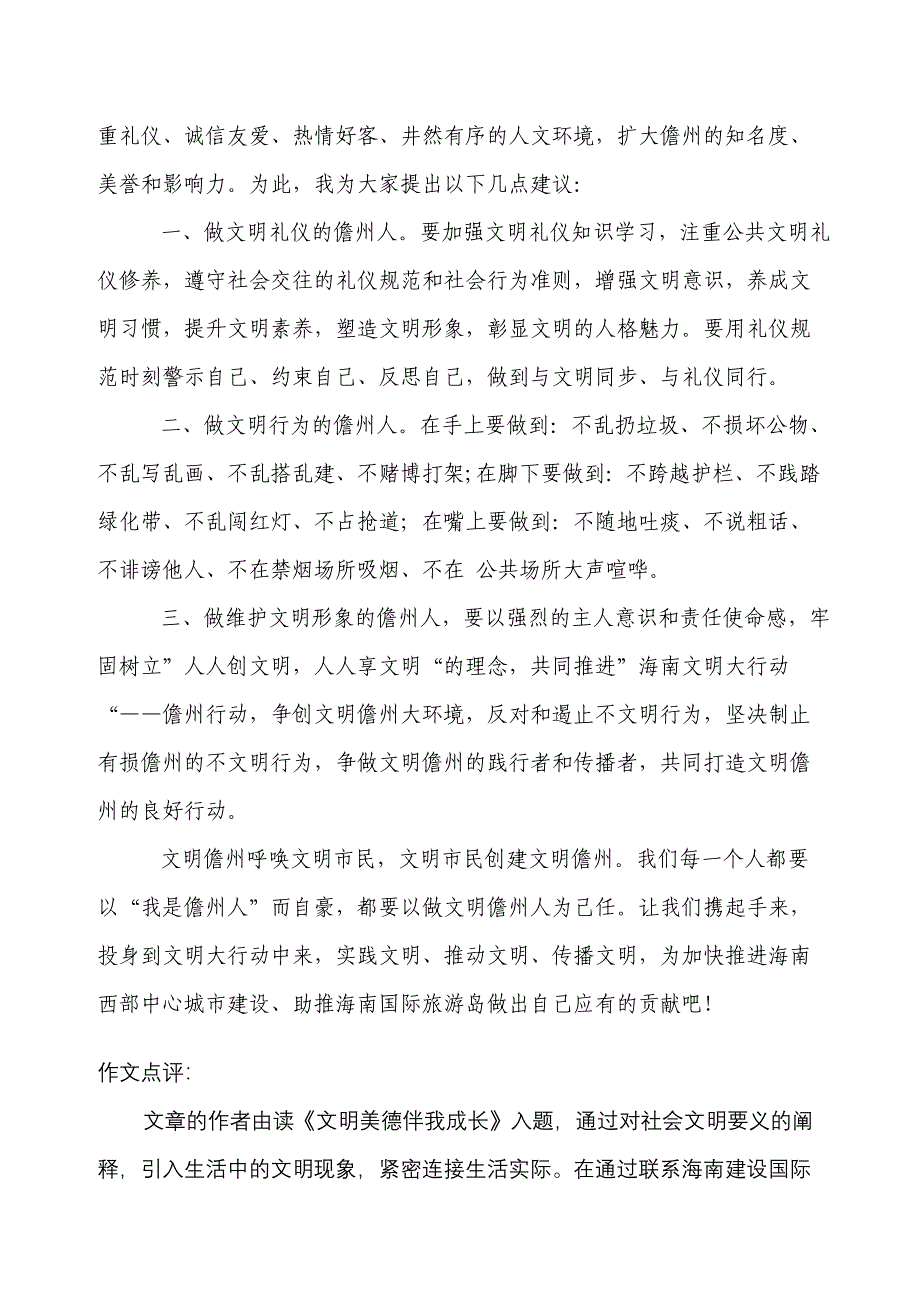 重礼仪、诚信友爱、热情好客、井然有序的人文环境，扩大儋州的知名度、
美誉和影响力。为此，我为大家提出以下几点建议：
一、做文明礼仪的儋州人。要加强文明礼仪知识学习，注重公共文明礼
仪修养，遵守社会交往的礼仪规范和社会行为准则，增强文明意识，养成文
明习惯，提升文明素养，塑造文明形象，彰显文明的人格魅力。要用礼仪规
范时刻警示自己、约束自己、反思自己，做到与文明同步、与礼仪同行。
二、做文明行为的儋州人。在手上要做到：不乱扔垃圾、不损坏公物、
不乱写乱画、不乱搭乱建、不赌博打架；在脚下要做到：不跨越护栏、不践踏
绿化带、不乱闯红灯、不占抢道；在嘴上要做到：不随地吐痰、不说粗话、
不诽谤他人、不在禁烟场所吸烟、不在 公共场所大声喧哗。
三、做维护文明形象的儋州人，要以强烈的主人意识和责任使命感，牢
固树立”人人创文明，人人享文明“的理念，共同推进”海南文明大行动
“——儋州行动，争创文明儋州大环境，反对和遏止不文明行为，坚决制止
有损儋州的不文明行为，争做文明儋州的践行者和传播者，共同打造文明儋
州的良好行动。
文明儋州呼唤文明市民，文明市民创建文明儋州。我们每一个人都要
以“我是儋州人”而自豪，都要以做文明儋州人为己任。让我们携起手来，
投身到文明大行动中来，实践文明、推动文明、传播文明，为加快推进海南
西部中心城市建设、助推海南国际旅游岛做出自己应有的贡献吧！
作文点评：
文章的作者由读《文明美德伴我成长》入题，通过对社会文明要义的阐
释，引入生活中的文明现象，紧密连接生活实际。在通过联系海南建设国际